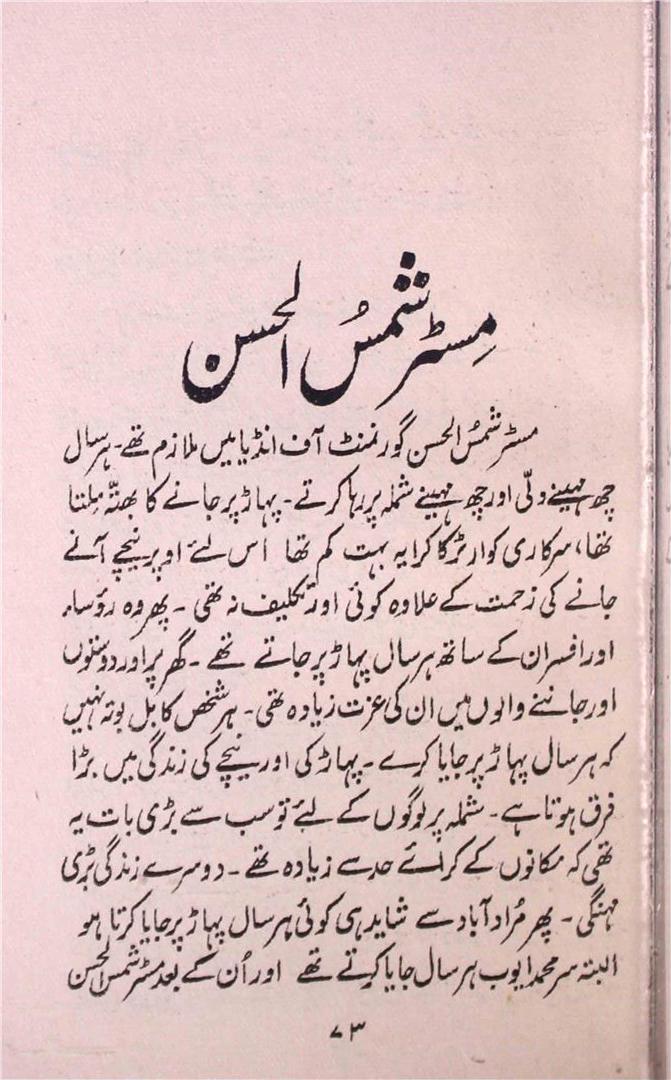 مِسٹر شمسُ الحسن
مسٹر شمسُ الحسن گورنمنٹ آف انڈیا میں ملازم تھے۔ ہر سال
چھ مہینے دلّی اور چھ مہینے شملہ پر رہا کرتے۔ پہاڑ پر جانے کا بھتّہ ملتا
تھا، سرکاری کوارٹر کا کرایہ بہت کم تھا اس لئے اوپر نیچے آنے
جانے کی زحمت کے علاوہ کوئی اور تکلیف نہ تھی۔ پھر وہ رؤساء
اور افسران کے ساتھ ہر سال پہاڑ پر جاتے تھے۔ گھر پر اور دوستوں
اور جاننے والوں میں ان کی عزت زیادہ تھی۔ ہر شخص کا بل بوتہ نہیں
کہ ہر سال پہاڑ پر جایا کرے۔ پہاڑ کی اور نیچے کی زندگی میں بڑا
فرق ہوتا ہے۔ شملہ پر لوگوں کے لئے تو سب سے بڑی بات یہ
تھی کہ مکانوں کے کرائے حد سے زیادہ تھے۔ دوسرے زندگی بڑی
مہنگی۔ پھر مُراد آباد سے شاید ہی کوئی ہر سال پہاڑ پر جایا کرتا ہو
البتہ سر محمد ایوب ہر سال جایا کرتے تھے اور اُن کے بعد مسٹر شمس الحسن
۷۳